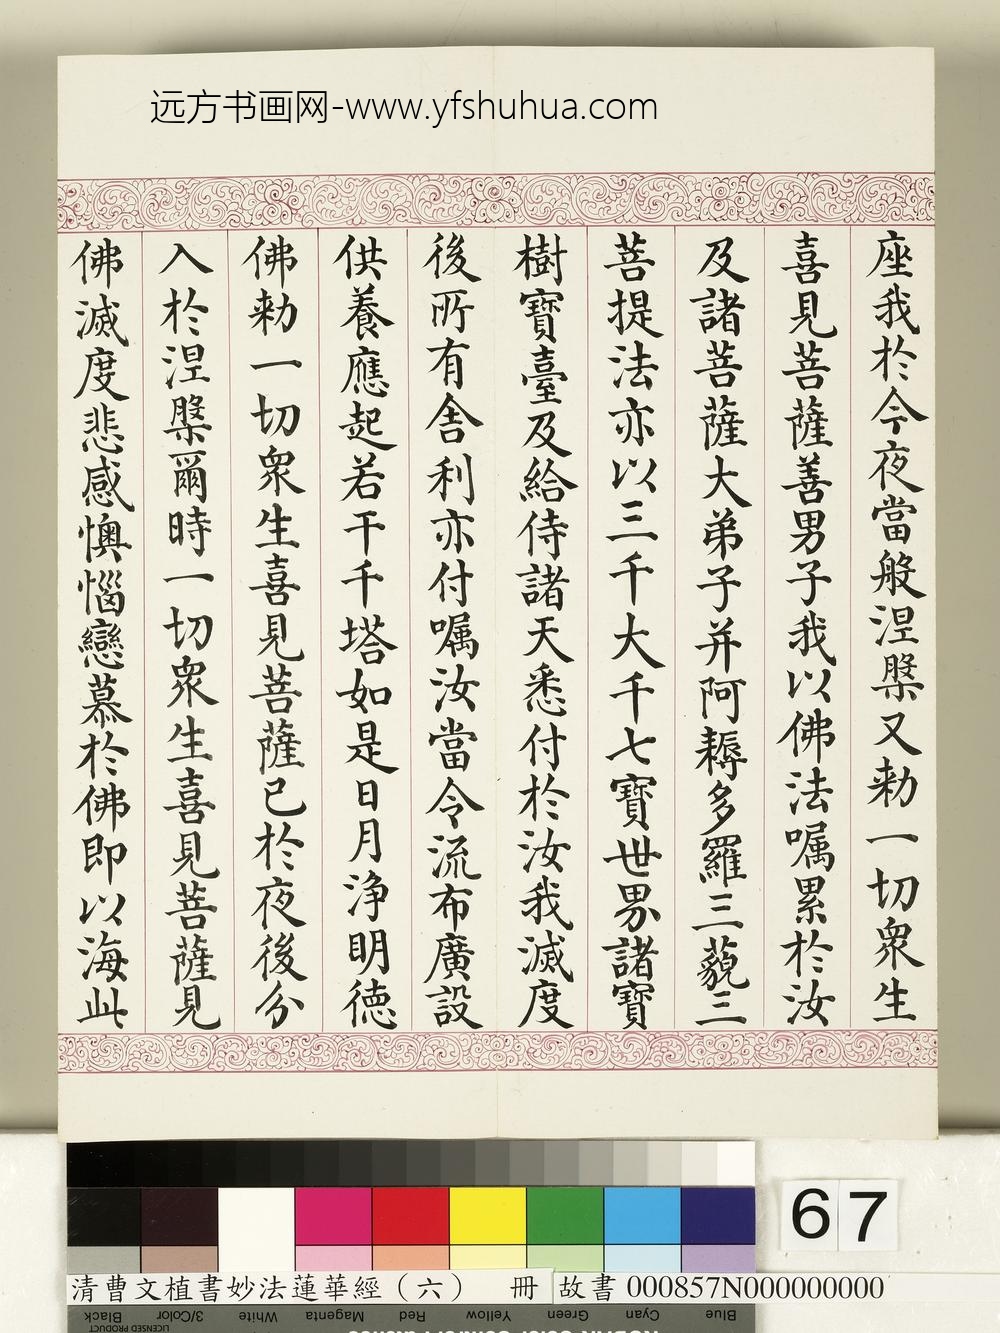 远方书画网-www.yfshuhua.com
座我於今夜當般涅槃又勑一切衆生
喜見菩薩善男子我以佛法嘱累於汝
及諸菩薩大弟子并阿耨多羅三藐三
菩提法亦以三千大千七寶世界諸寶
樹寶臺及給侍諸天悉付於汝我滅度
後所有舍利亦付嘱汝當令流布廣設
供養應起若干千塔如是日月淨明德
佛勑一切衆生喜見菩薩已於夜後分
入於涅槃爾時一切衆生喜見菩薩見
佛滅度悲感懊惱戀慕於佛即以海此
67
清曹文植書妙法蓮華經（六） 冊 故書 000857N000000000
Black 3/Color White Magenta Red Yellow Green Cyan Blue
LICENSED PRODUCT